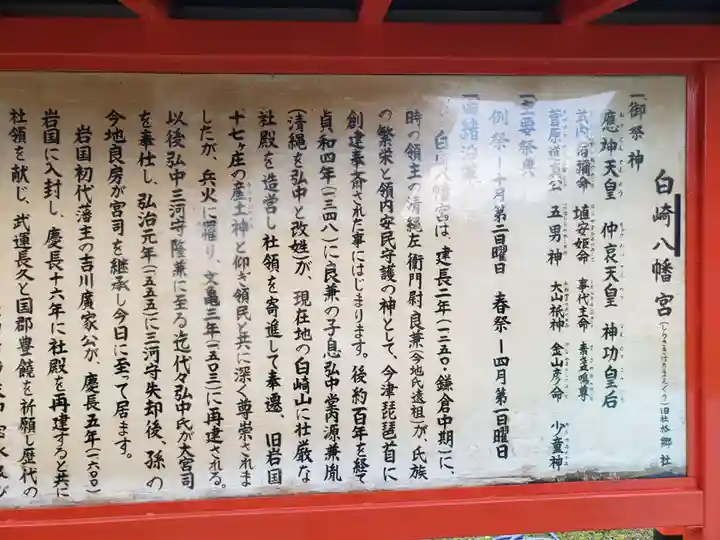 白崎八幡宮(しらさきはちまんぐう)旧社格郷社
一、御祭神
應神天皇 仲哀天皇 神功皇后
武内宿禰命 埴安姫命 事代主命 素盞嗚尊
菅原道真公 五男神 大山祇神 金山彦命 少童神
一、主要祭典
例祭―十月第二日曜日 春祭―四月第一日曜日
一、由緒沿革
白崎八幡宮は、建長二年(一二五〇・鎌倉中期)に、
時の領主の清縄左衛門尉良兼(今地氏遠祖)が、氏族
の繁栄と領内安民守護の神として、今津琵琶首に
創建奉斎された事にはじまります。後約百年を経て
貞和四年(一三四八)に良兼の子息弘中堂内源兼胤
(清縄を弘中と改姓)が、現在地の白崎山に壮厳な
社殿を造営し社領を寄進して奉遷、旧岩国
十七ヶ庄の産土神と仰ぎ領民と共に深く尊崇されま
したが、兵火に罹り、文亀三年(一五〇三)に再建される。
以後弘中三河守隆兼に至る迄代々弘中氏が大宮司
を奉仕し、弘治元年(一五五五)に三河守失却後、孫の
今地良房が宮司を継承し今日に至って居ます。
岩国初代藩主の吉川廣家公が、慶長五年(一六〇〇)
岩国に入封し、慶長十六年に社殿を再建すると共に
社領を献じ、武運長久と国郡豊饒を祈願し歴代の